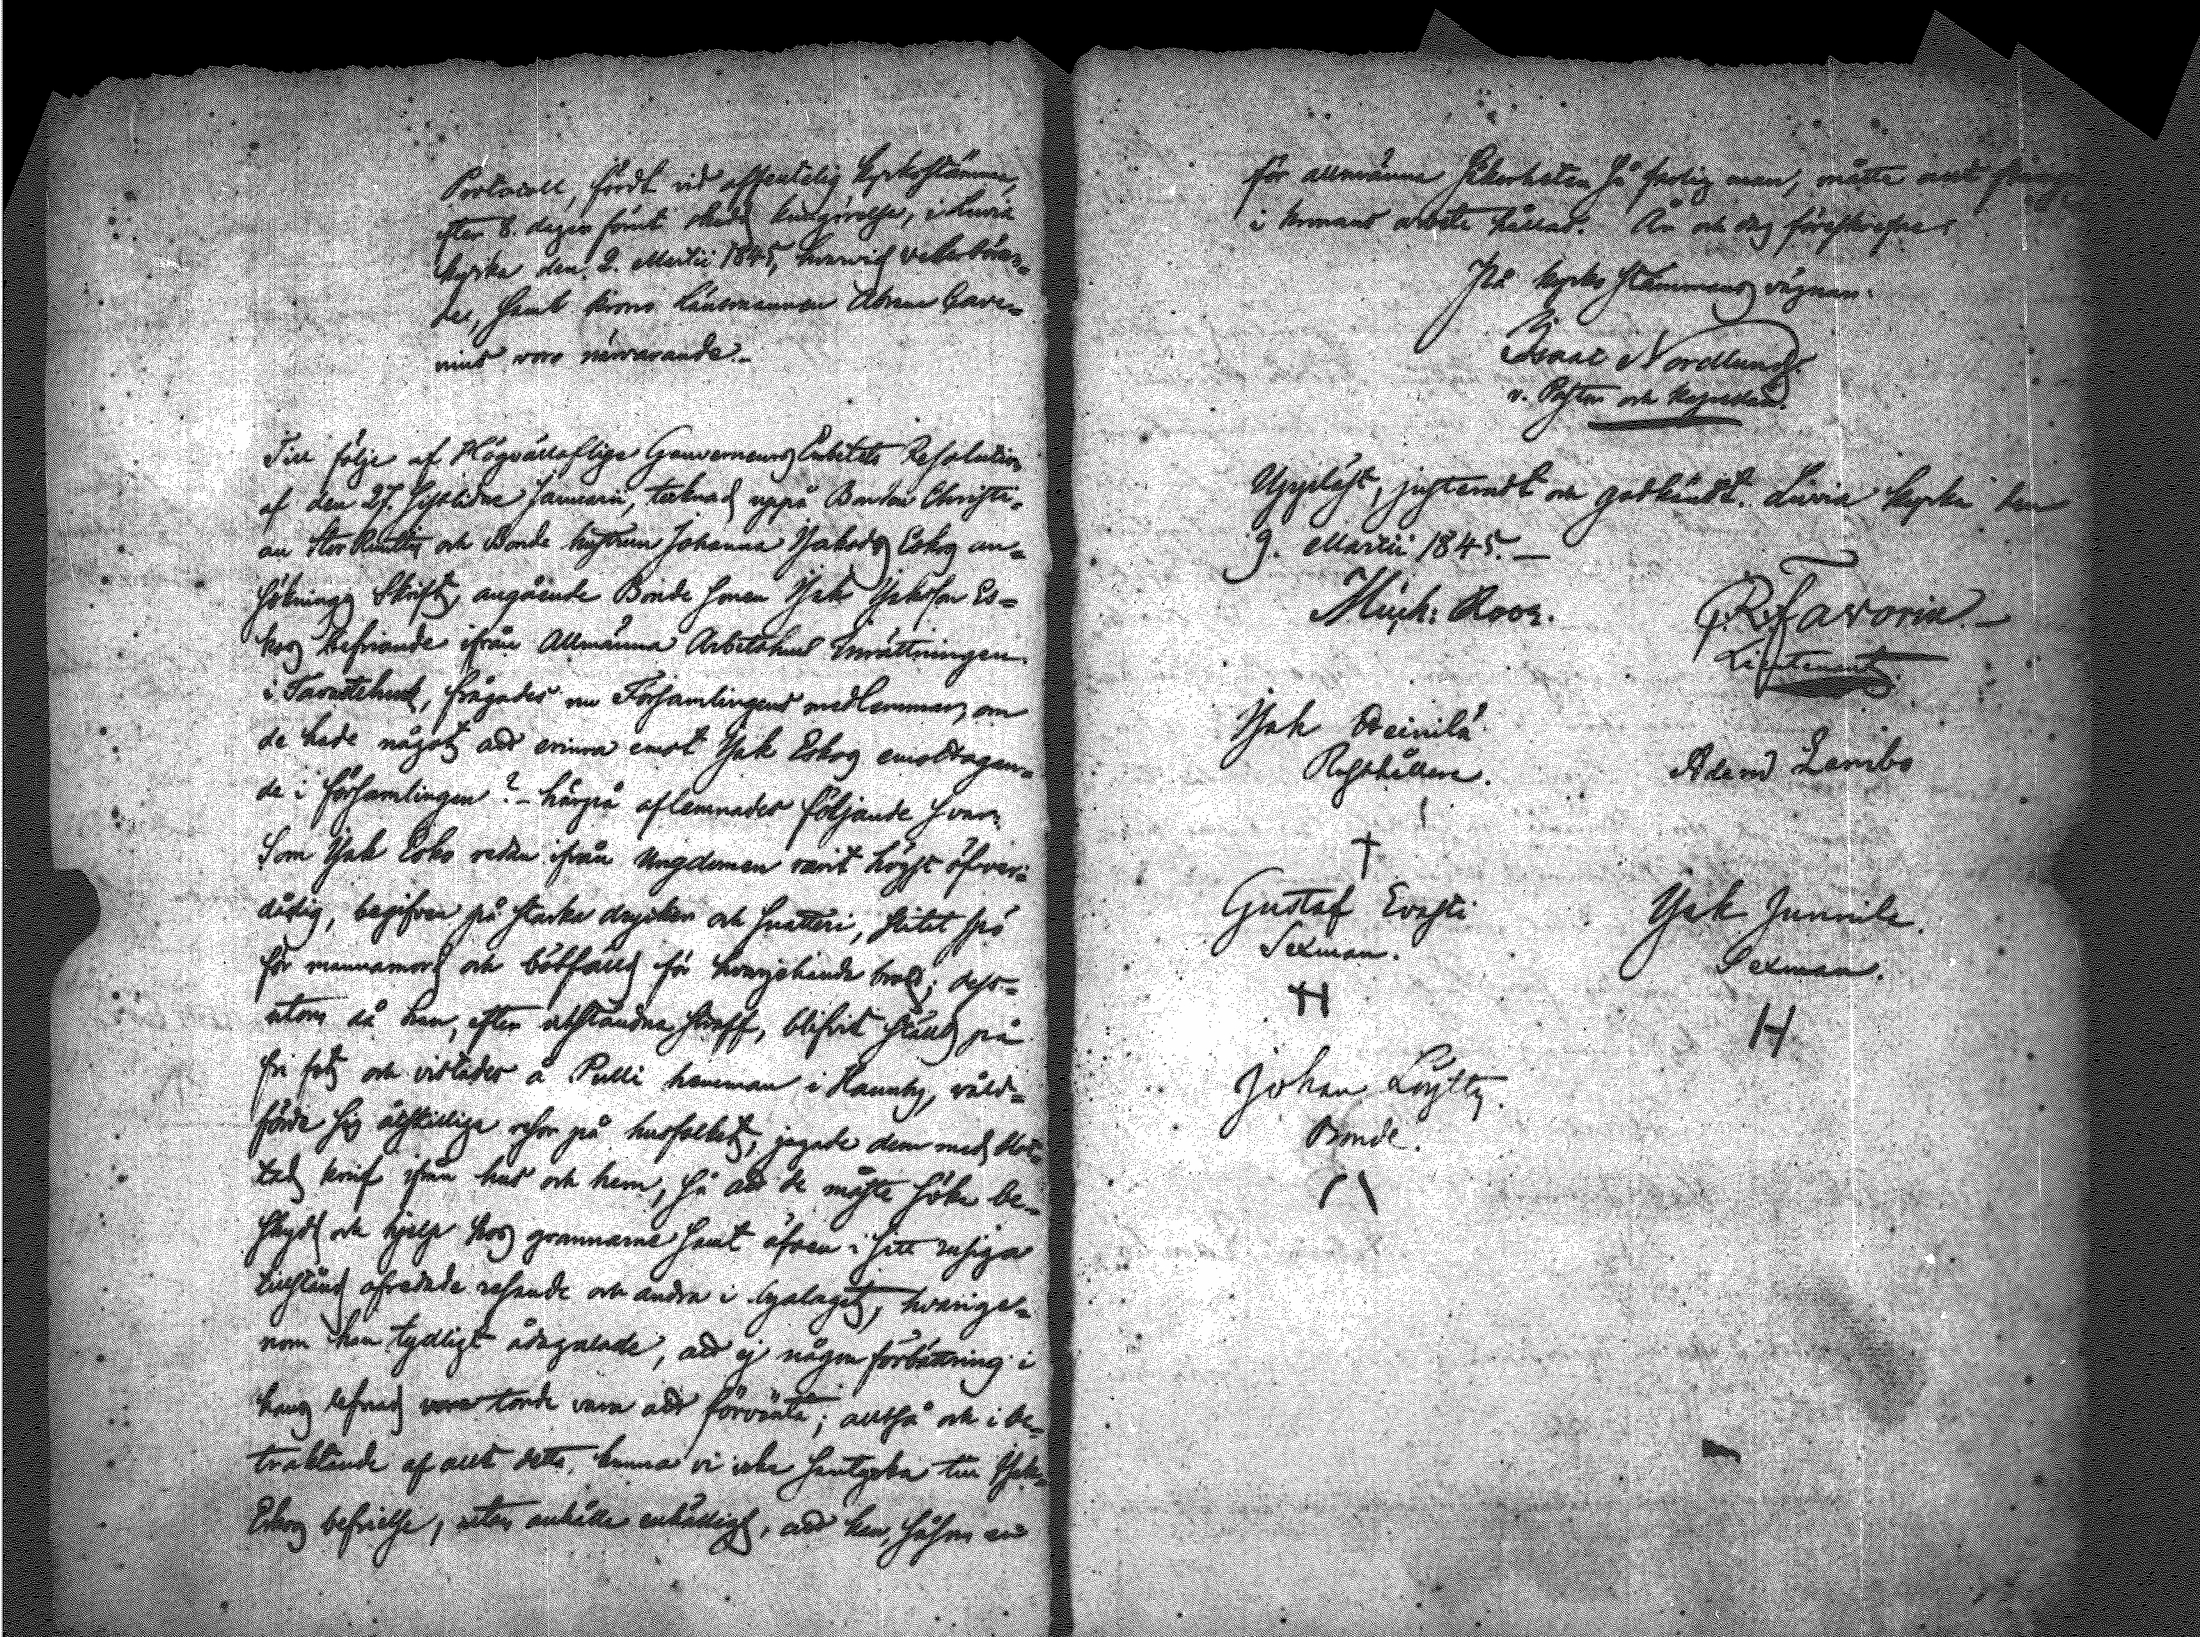 Protocoll, fördt vid offentelig kyrkostämma,
efter 8. dagar förut skedd kungörelse, i Luvia
kyrka den 2. Martii 1845, hvarvid vederböran=
der, samt krono länsmannen Abram Cave=
nius voro närvarande.
Till följe af Högvällaflige Gouverneurs Embetets Resolution
af den 27. sistlidne Januarii, tecknad uppå Bonden Christi=
an och Bonde hustrun Johanna Isaksdr Eskos an=
söknings skrift, angående Bonde sonen Isak Isaksson Es=
kos befriande ifrån Allmänna Arbetshus Inrättningen
i Tavastehus, frågades nu Församlingens medlemmar, om
de hade något att erinra emot Isak Eskos emottagan=
de i församlingen? – härpå aflemnades följande svar:
Som Isak Esko redan ifrån Ungdomen varit högst öfver=
dådig, begifven på starka drycker och snatteri, slitet spö
för mannamord och bötfälld för hvarjehanda brott; dess=
utom då han, efter utståndna straff, blifvit ställd på
fri fot och vistades å Pulli hemman i Haunby, våld=
förde sig åtskillige resor på husfolket, jagade dem med blot=
tad knif ifrån hus och hem, så att de måste söka be=
skydd och hjelp hos grannarne samt äfven i sitt rusiga
tillstånd ofredade resande och andra i byalaget, hvarige=
nom han tydligt ådagalade, att ej någon förbättring i
hans lefnad torde vara att förvänta; alltså och i be=
traktande af allt detta, kunna vi icke samtycka till Isak
Eskos befrielse, utan anhålla enhälligt, att han, såsom en
för allmänna säkerheten så farlig man, måtte
i kronans arbete hållas. År och dag föreskrefne.
På kyrko stämmans vägnar.
Isaac Nordlund
v. Pastor och Kapellan.
Uppläst, justeradt och godkändt. Luvia kyrka den
9. Martii 1845.
Mich: Roos.
G. R. Favorin
Lieutenant
Isak Heinilä
Rusthållare.
Adam Lembo
Gustaf Evasti
Sexman.
Isak Junnila
Sexman.
H
H
Johan Löytty
Bonde.